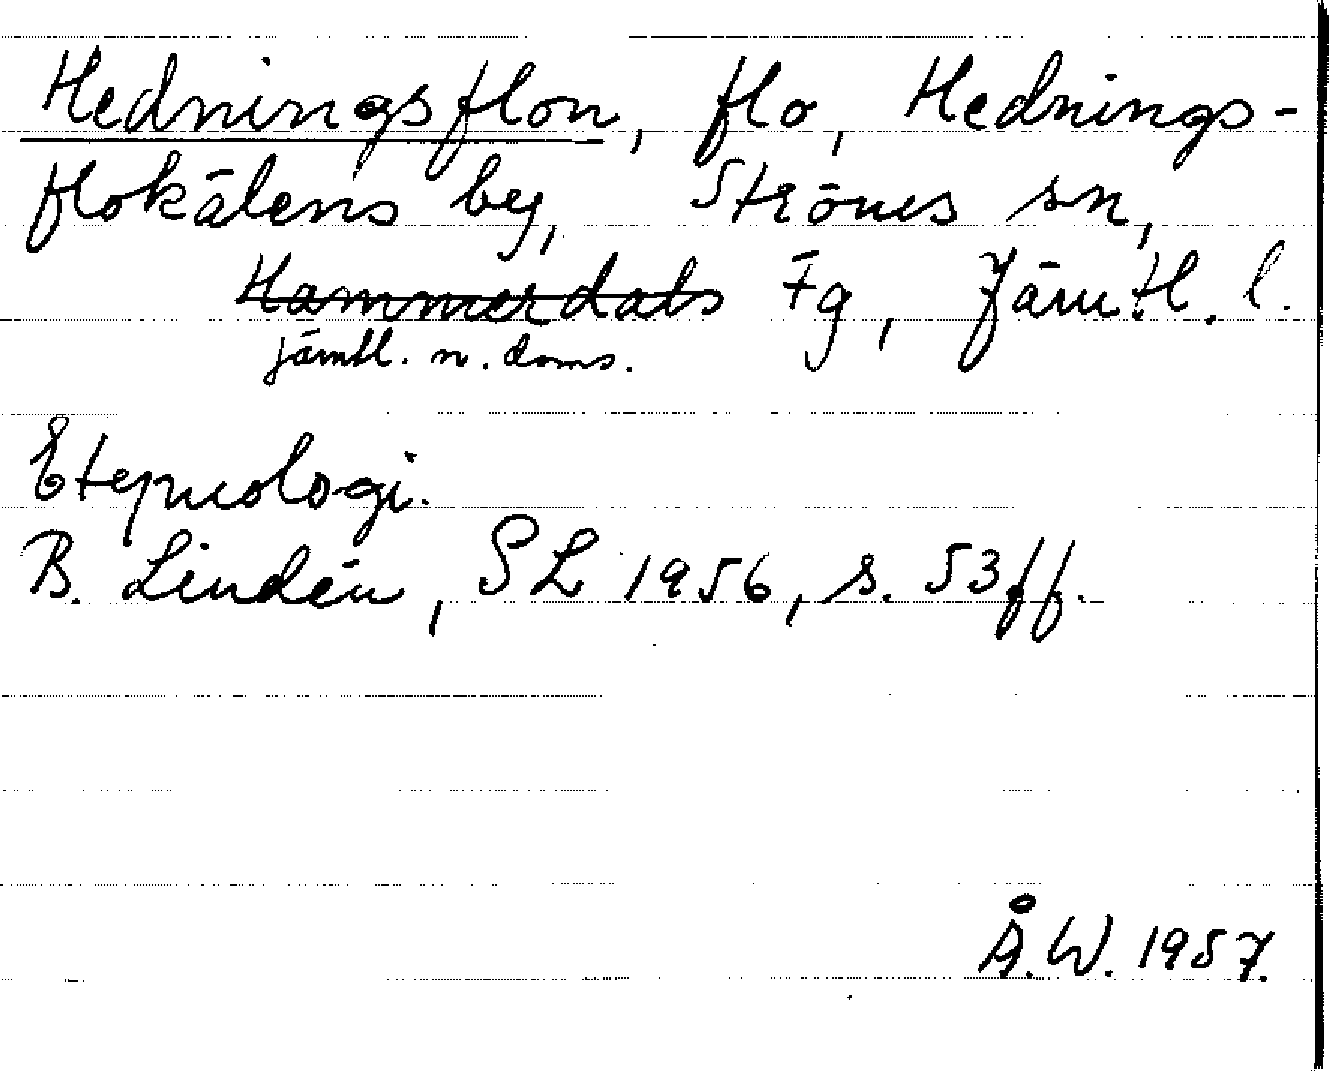 Hedningsflon, flo, Hednings-
flokålens by, Ströms sn,
Hammerdals Tg, Jämtl. l.
jämtl. n. doms.
Etymologi.
B. Lindén, SL 1956, s. 53ff.
Å.W. 1957.